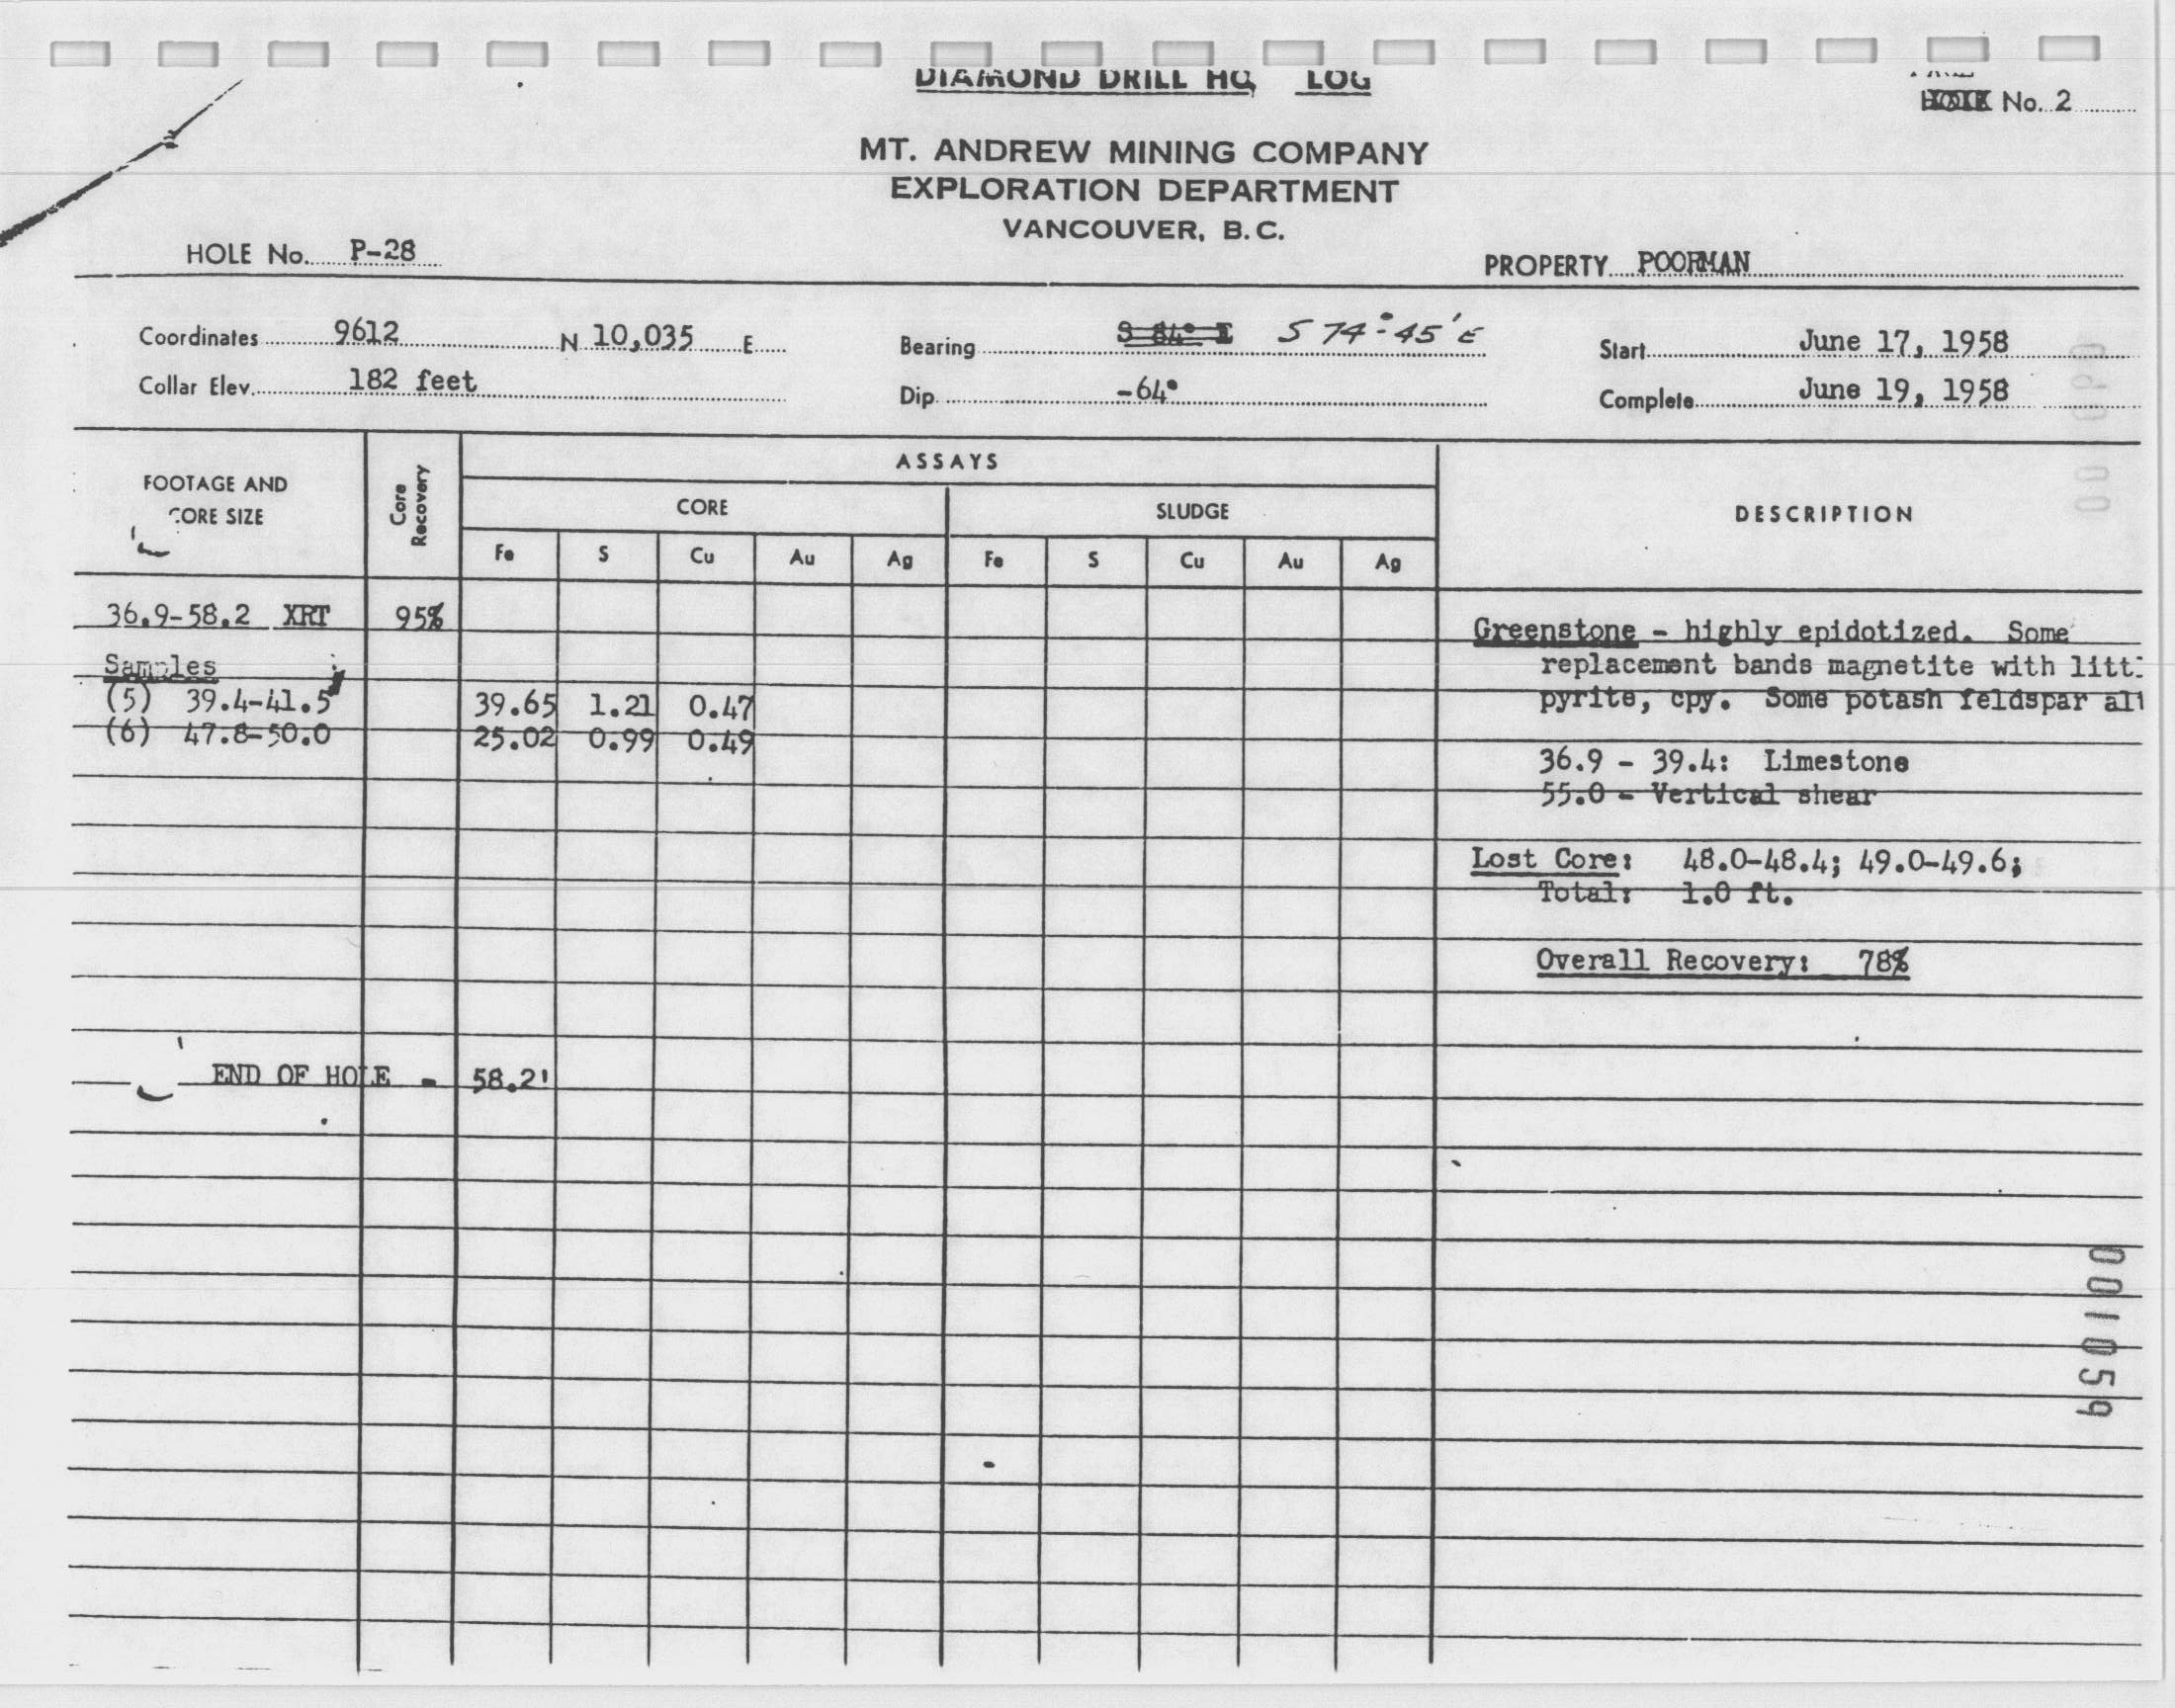 DIAMOND DRILL HO LOG
No. 2
MT. ANDREW MINING COMPANY
EXPLORATION DEPARTMENT
VANCOUVER, B.C.
HOLE No. P-28
PROPERTY POORMAN
Coordinates 9612 N 10,035 E
Bearing S 84° E S 74°-45' E
Start June 17, 1958
Collar Elev. 182 feet
Dip -64°
Complete June 19, 1958
FOOTAGE AND
CORE SIZE
Core
Recovery
ASSAYS
CORE
SLUDGE
Fe S Cu Au Ag Fe S Cu Au Ag
DESCRIPTION
36.9-58.2 XRT 95%
Greenstone - highly epidotized. Some
Samples
replacement bands magnetite with litt
(5) 39.4-41.5 39.65 1.21 0.47
pyrite, cpy. Some potash feldspar al
(6) 47.8-50.0 25.02 0.99 0.49
36.9 - 39.4: Limestone
55.0 - Vertical shear
Lost Core: 48.0-48.4; 49.0-49.6;
Total: 1.0 ft.
Overall Recovery: 78%
END OF HOLE - 58.2'
001059